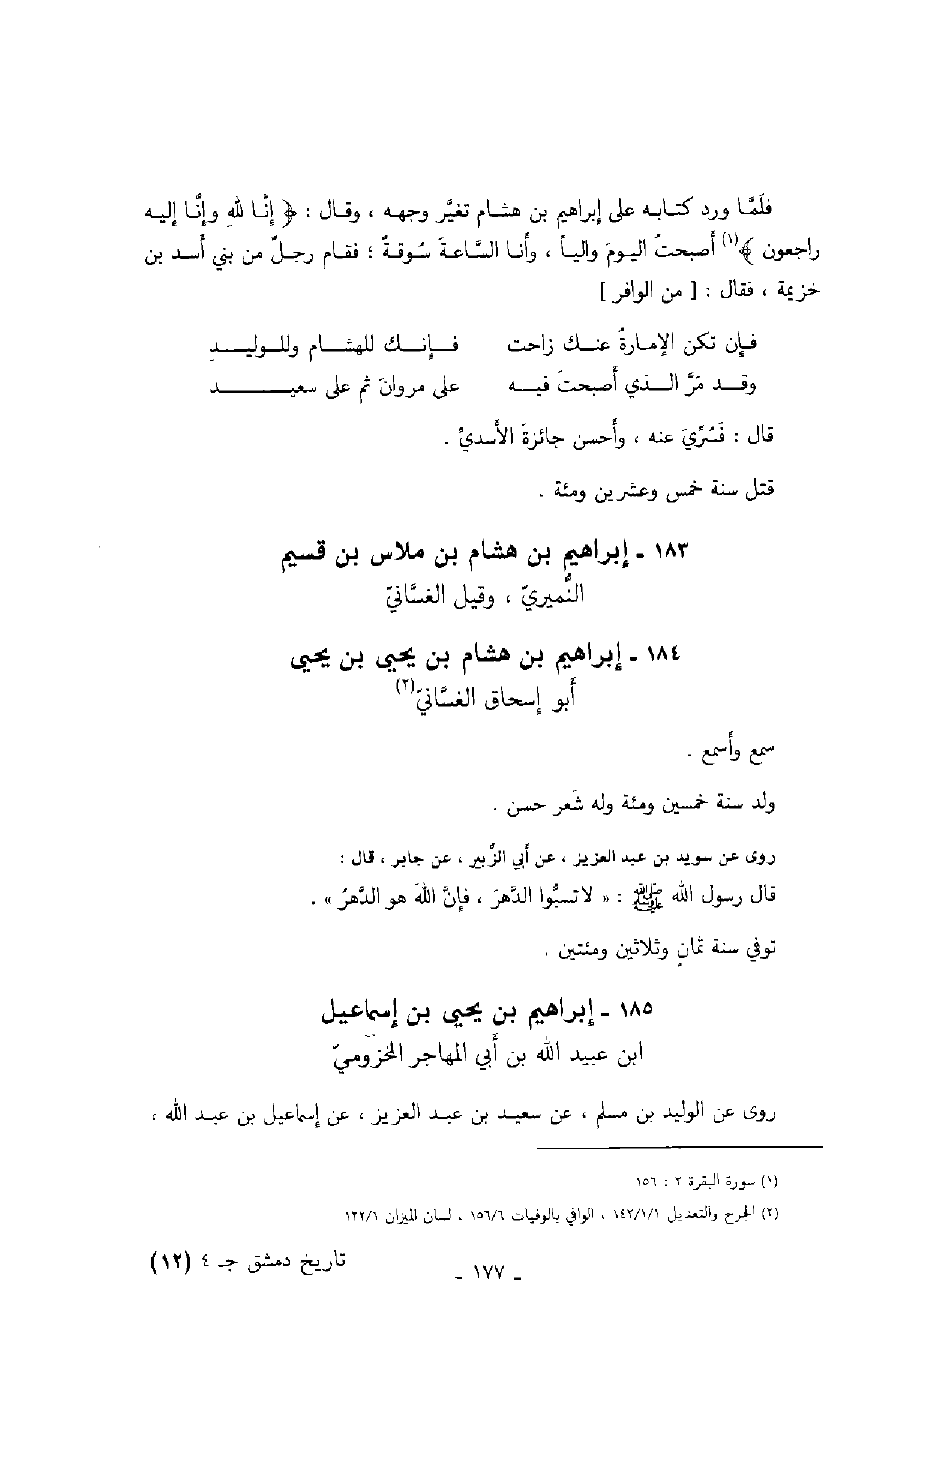 فلَمَّا ورد كتابه على إبراهيم بن هشام تغيَّر وجهه ، وقال : ﴿ إنَّا لله وإنَّا إليه
راجعون ﴾(١) أصبحتُ اليومَ والياً ، وأنا السَّاعةَ سُوقةٌ ؛ فقام رجلٌ من بني أسد بن
خزيمة ، فقال : [ من الوافر ]
فإن تكن الإمارةُ عنك زاحت فإنك للهشام وللوليد
وقد مَرَّ الذي أصبحتَ فيه على مروانَ ثم على سعيد
قال : فَسُرِّيَ عنه ، وأحسن جائزةَ الأسديِّ .
قتل سنة خمس وعشرين ومئة .
١٨٣ - إبراهيم بن هشام بن ملاس بن قسيم
النُّميريّ ، وقيل الغسَّانيّ
١٨٤ - إبراهيم بن هشام بن يحيى بن يحيى
أبو إسحاق الغسَّانيّ(٢)
سمع وأسمع .
ولد سنة خمسين ومئة وله شَعر حسن .
روى عن سويد بن عبد العزيز ، عن أبي الزُّبير ، عن جابر ، قال :
قال رسول الله ﷺ : « لا تسبُّوا الدَّهرَ ، فإنَّ اللهَ هو الدَّهرُ » .
توفي سنة ثمانٍ وثلاثين ومئتين .
١٨٥ - إبراهيم بن يحيى بن إسماعيل
ابن عبيد الله بن أبي المهاجر المخزوميّ
روى عن الوليد بن مسلم ، عن سعيد بن عبد العزيز ، عن إسماعيل بن عبيد الله ،
(١) سورة البقرة ٢ : ١٥٦
(٢) الجرح والتعديل ١٤٢/١/١ ، الوافي بالوفيات ١٥٦/٦ ، لسان الميزان ١٢٢/١
- ١٧٧ -
تاريخ دمشق جـ ٤ (١٢)